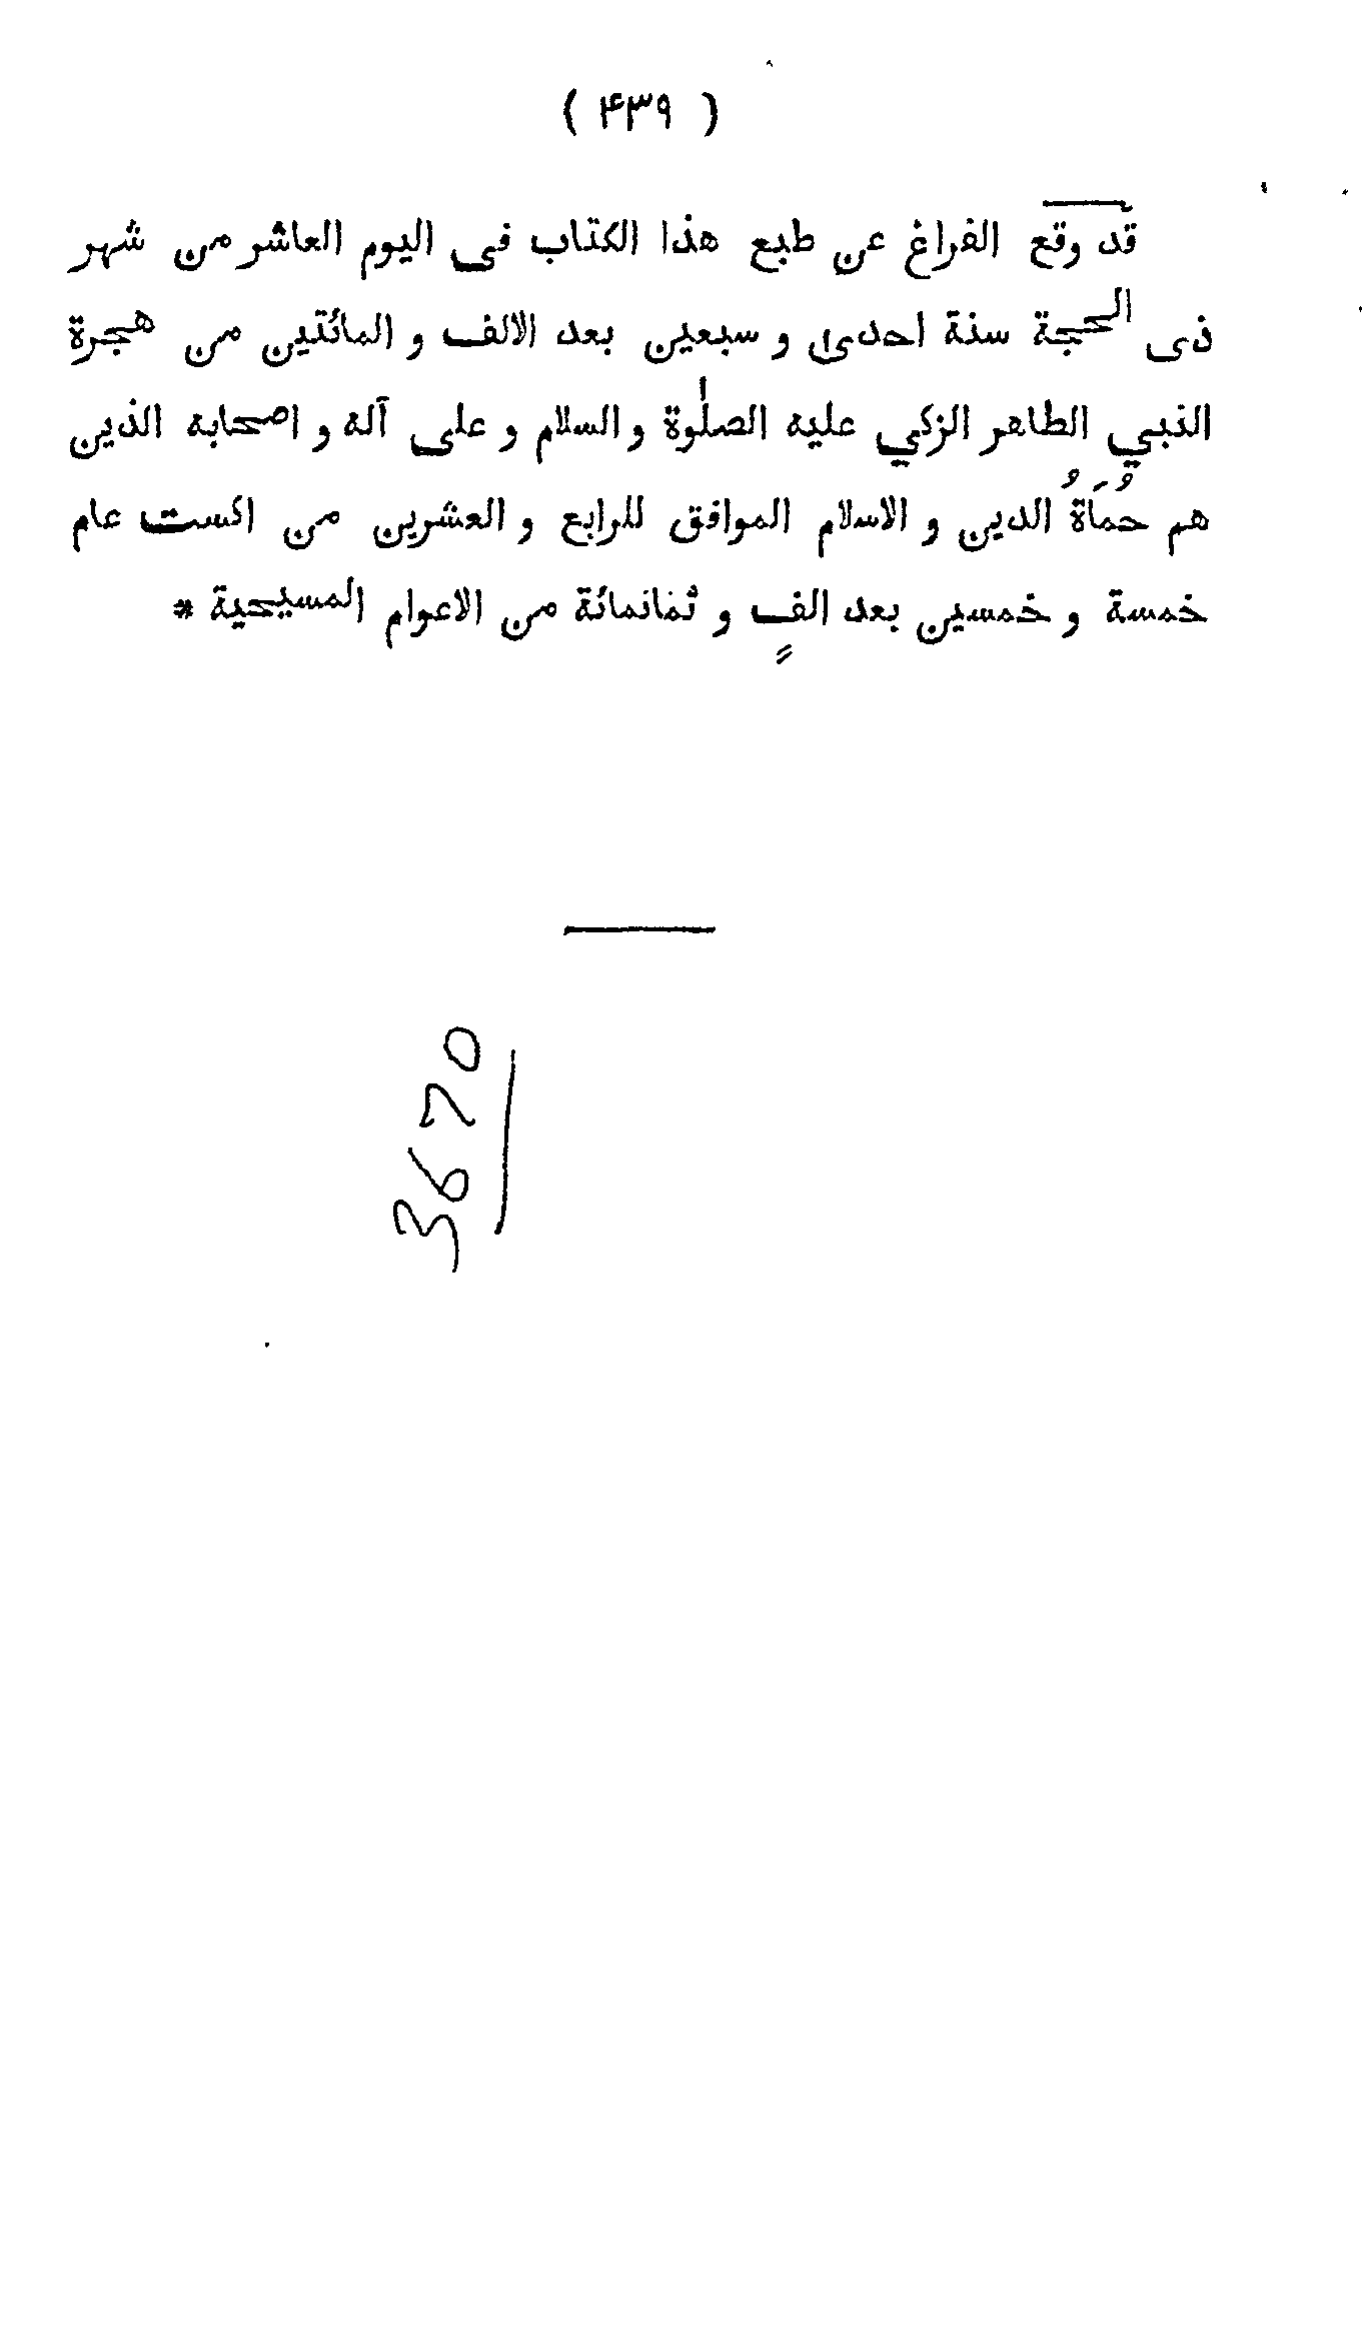 ( ۴۳۹ )
قد وقع الفراغ عن طبع هذا الكتاب فى اليوم العاشر من شهر
ذى الحجة سنة احدىٰ و سبعين بعد الالف و المائتين من هجرة
النبي الطاهر الزكي عليه الصلٰوة و السلام و على آله و اصحابه الذين
هم حُمَاةُ الدين و الاسلام الموافق للرابع و العشرين من اكست عام
خمسة و خمسين بعد الفٍ و ثمانمائة من الاعوام المسيحية *
3670